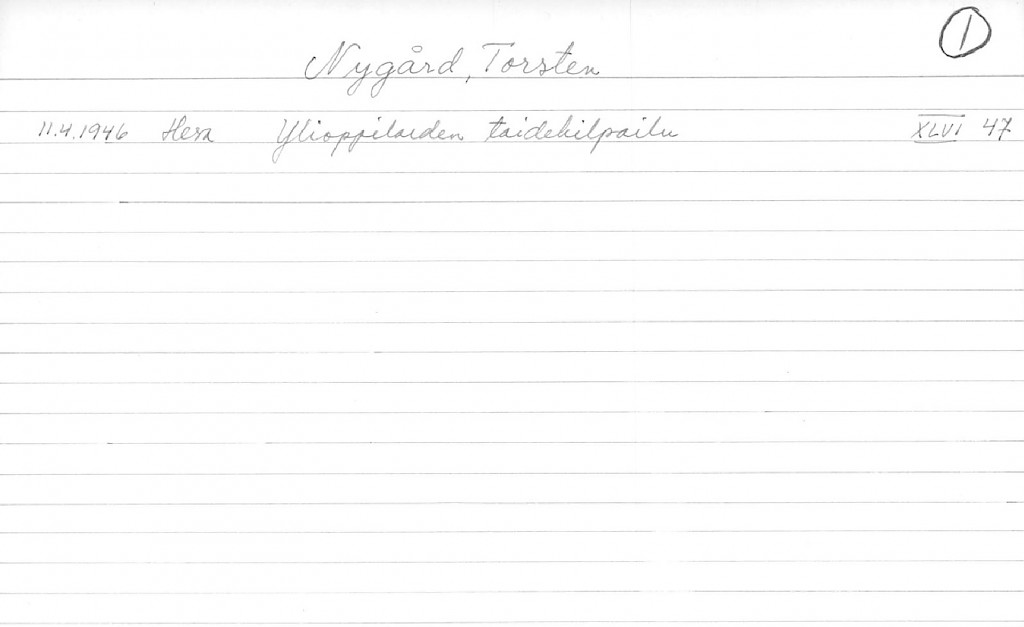 1
Nygård, Torsten
11.4.1946 Hesa Ylioppilaiden taidekilpailu XLVI 47